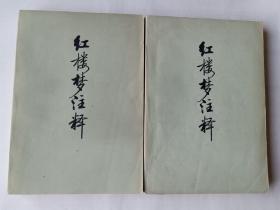 红楼梦注释
红楼梦注释